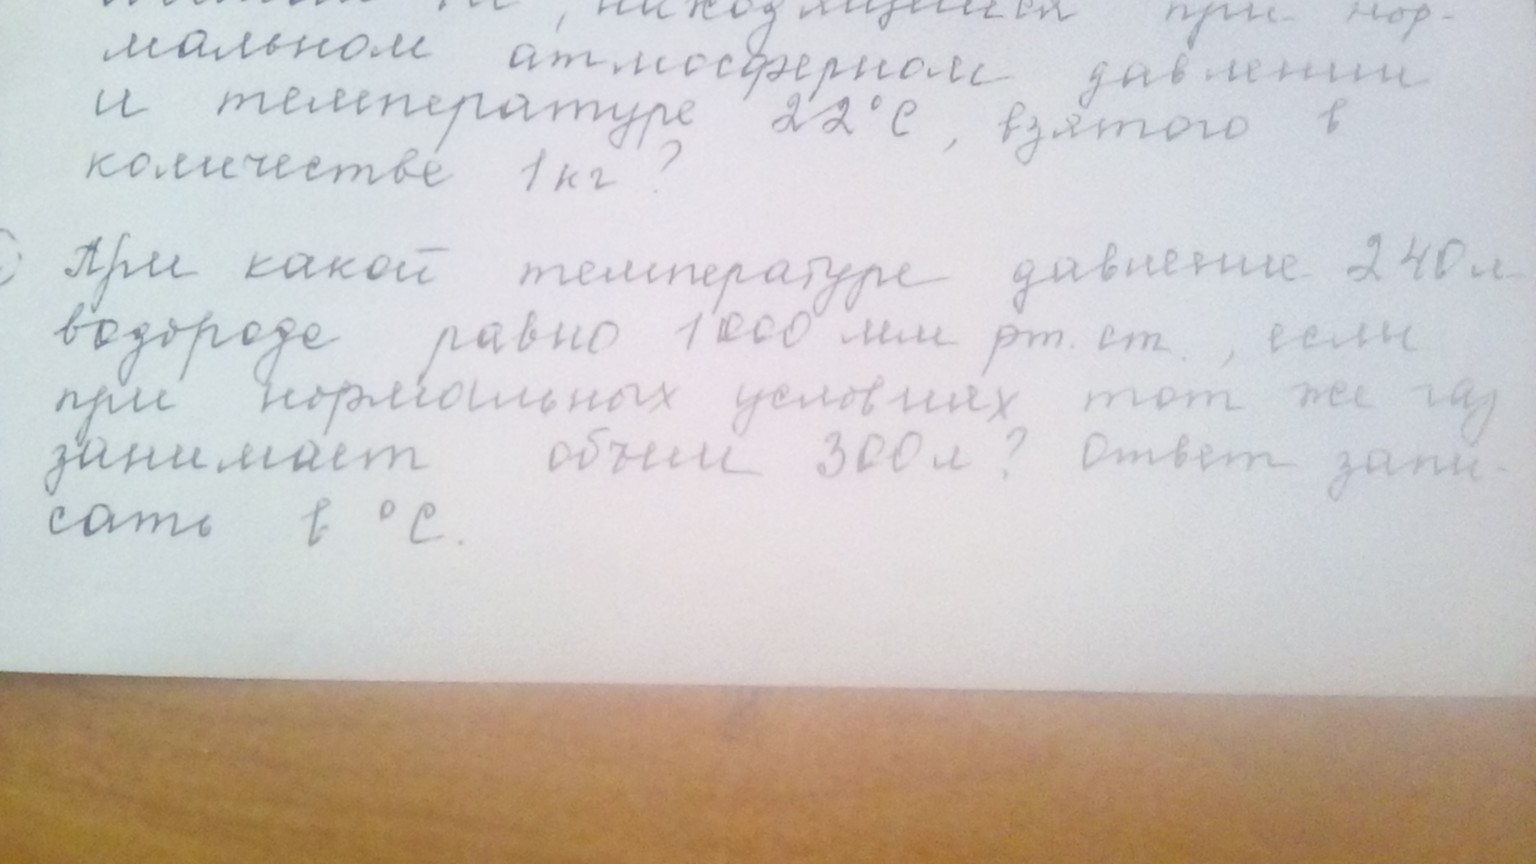 , находящийся при нор-
мальном атмосферном давлении
и температуре 22°С, взятого в
количестве 1кг?
При какой температуре давление 240л
водороде равно 1000 мм рт. ст., если
при нормальных условиях тот же газ
занимает объем 300л? Ответ запи-
сать в °С.